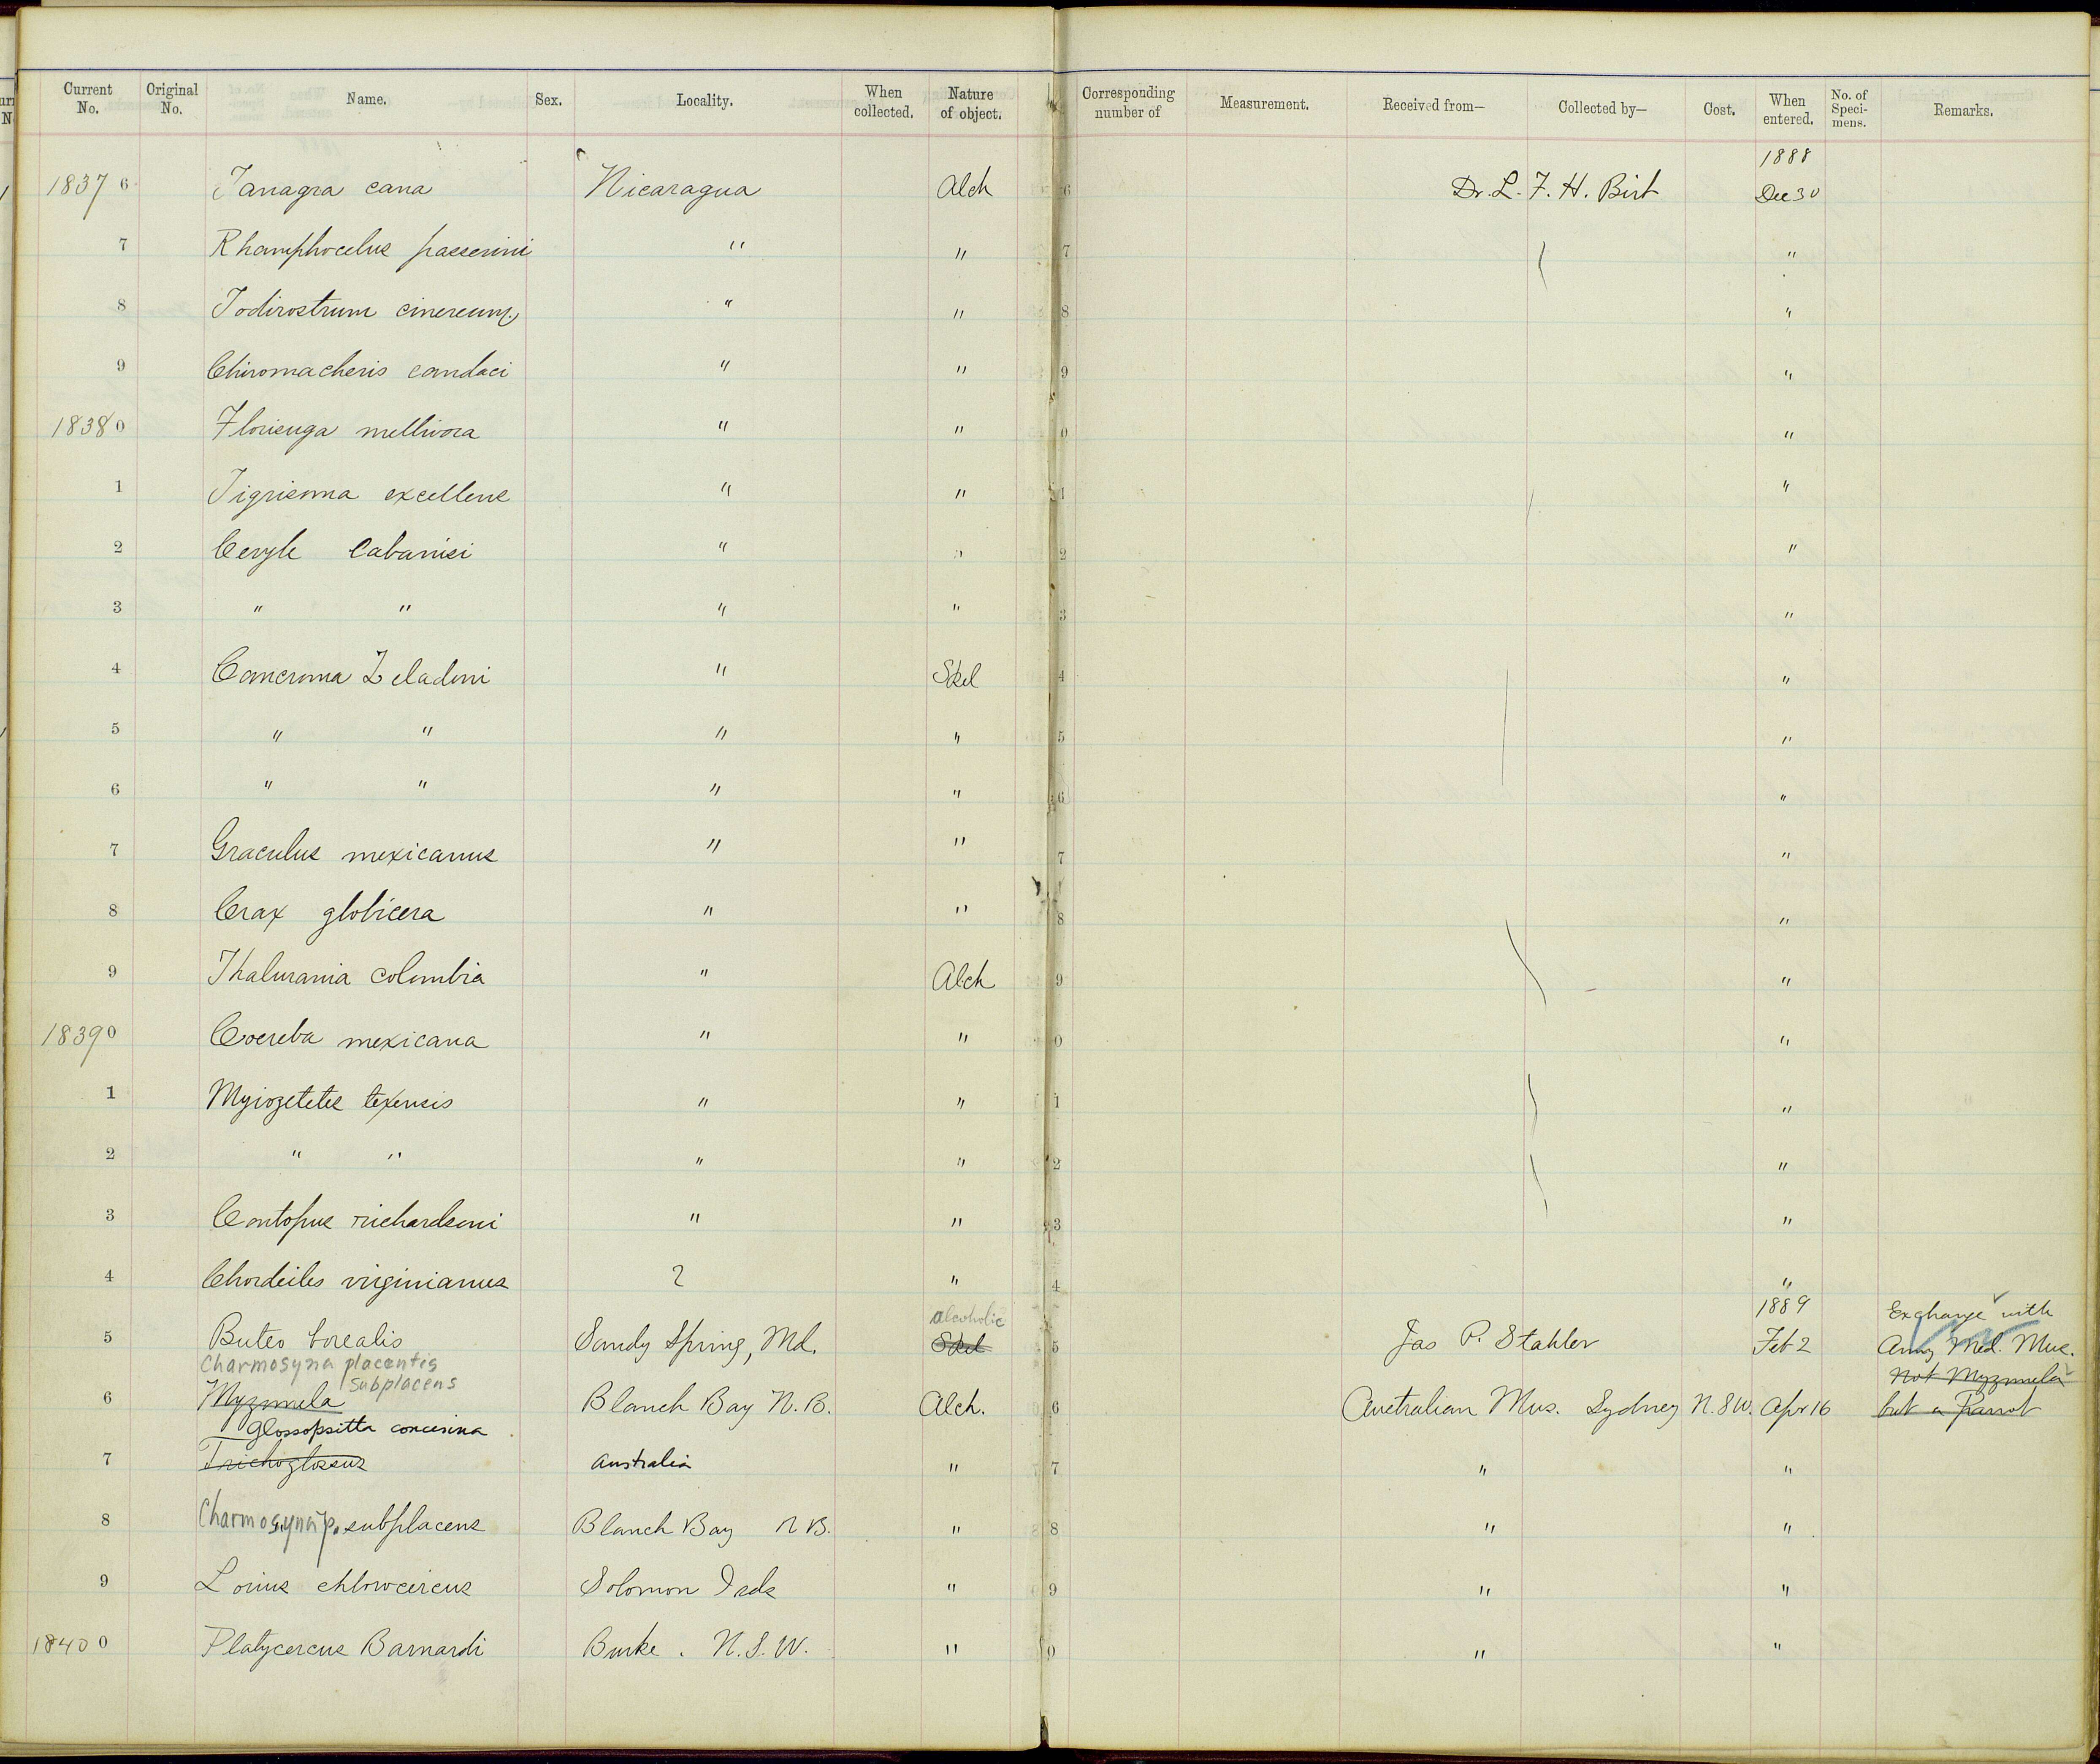 Current No. Original No. Name. Sex. Locality. When collected. Nature of object. Corresponding number of Measurement. Received from— Collected by— Cost. When entered. No. of Speci-mens. Remarks.
1888
18376 Tanagra cana Nicaragua Alch 6 Dr. L. F. H. Birt Dec 30
7 Rhamphocelus passerini " " 7 "
8 Todirostrum cinereum " " 8 "
9 Chiromacheris candaci " " 9 "
18380 Florisuga mellivora " " 0 "
1 Tigrisoma excellens " " 1 "
2 Ceryle Cabanisi " " 2 "
3 " " " " 3 "
4 Cancroma Zeladoni " Skel 4 "
5 " " " " 5 "
6 " " " " 6 "
7 Graculus mexicanus " " 7 "
8 Crax globicera " " 8 "
9 Thalurania columbia " Alch 9 "
18390 Coereba mexicana " " 0 "
1 Myiozetetes texensis " " 1 "
2 " " " " 2 "
3 Contopus richardsoni " " 3 "
4 Chordeiles virginianus ? " 4 "
alcoholic 1889 Exchange with
5 Buteo borealis Sandy Spring, Md. Skel 5 Jas P. Stabler Feb 2 Army Med. Mus.
Charmosyna placentis subplacens Not Myzomela
6 Myzomela Blanch Bay N.B. Alch. 6 Australian Mus. Sydney N.S.W. Apr 16 but a Parrot
Glossopsitta concinna
7 Trichoglossus Australia " 7 " "
8 Charmosyna p. subplacens Blanch Bay N B. " 8 " "
9 Lorius chlorocercus Solomon Isds " 9 " "
18400 Platycercus Barnardi Burke. N.S.W. " 0 " "